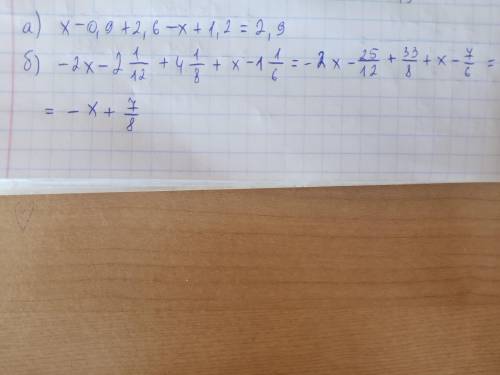 а) x-0,9+2,6-x+1,2=2,9
б) -2x-2 1/12+4 1/8+x-1 1/6=-2x-25/12+33/8+x-7/6=
=-x+7/8